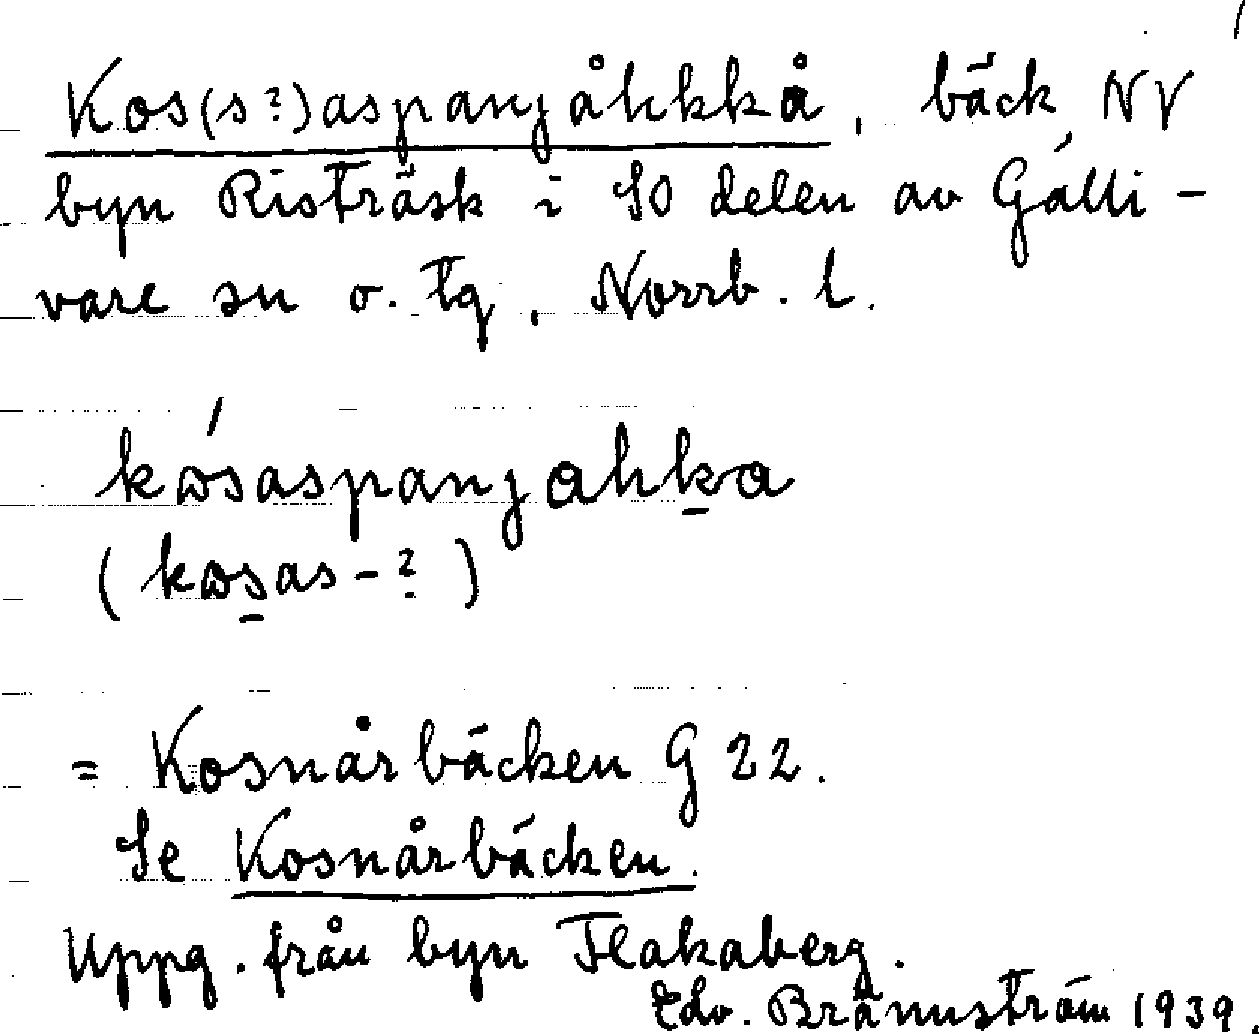 Kos(s?)aspanjåhkkå, bäck, NV
byn Risträsk i SO delen av Gälli-
vare sn o. tg, Norrb. l.
kåsaspanjahka
(kåsas-?)
= Kosnårbäcken G 22.
Se Kosnårbäcken.
Uppg. från byn Flakaberg.
Edv. Brännström 1939.